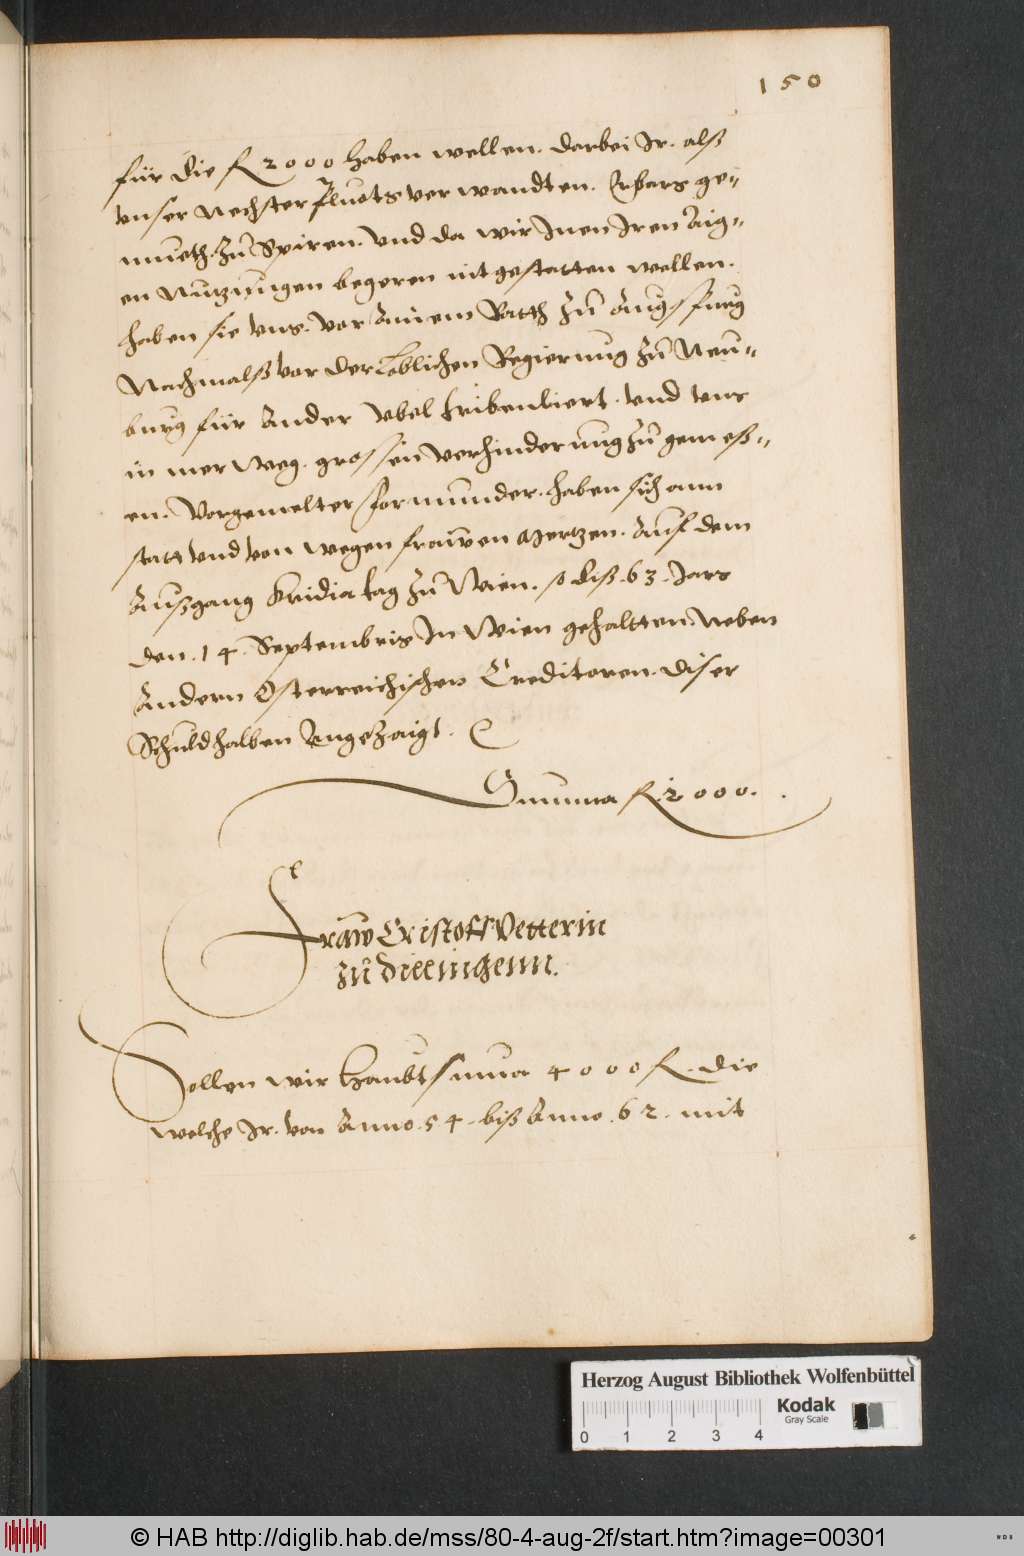 150
für die fl 2000 haben wellen. darbei Ir. alß
vnser Nechster Pluots verwandten. Erbars ge¬
mueth. Zu Spiren. Vnd da wir Inen Iren Aig¬
en Nutzungen begeren nit gestatten wellen.
haben sie vns. vor Ainem Ratth Zu Augspurg
Nachmalß vor der Loblichen Regierung Zu Neu¬
burg für Ander Vbel tribenliert. Vnd vns
in mer Weg. grossen verhinderung Zu gemeß¬
en. Vorgemelter formunder. haben sich ann
statt vnd von wegen frawen Mertzen. Auf dem
Außgang Kridia tag Zu Wien. so diß. 63. Jars
den. 14. Septembris In Wien gehaltten. Neben
Andern Osterreichischen Creditoren. diser
Schuld halben Angezaigt.
Summa fl. 2000.
Fraw Cristoff Vetterin
zu Dillingenn.
Sollen wir Haubt summa 4000 fl. die
welche Ir. von Anno. 54. biß Anno. 62. mit
Herzog August Bibliothek Wolfenbüttel
Kodak
Gray Scale
0 1 2 3 4
© HAB http://diglib.hab.de/mss/80-4-aug-2f/start.htm?image=00301